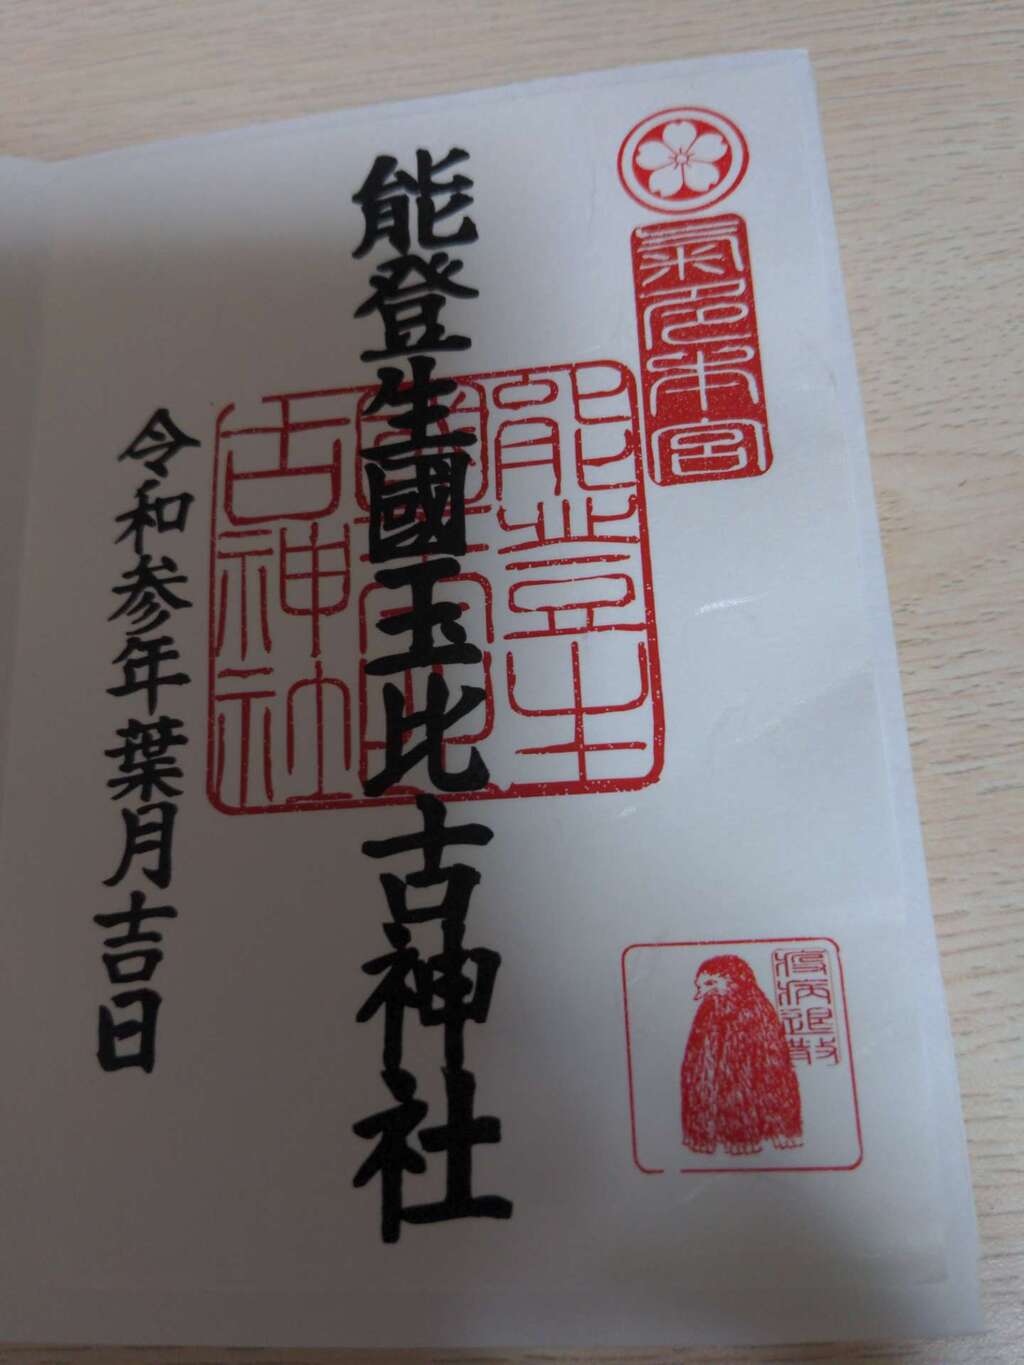 氣多本宮
疫病退散
能登生國玉比古神社
能登生
國玉比
古神社
令和参年葉月吉日